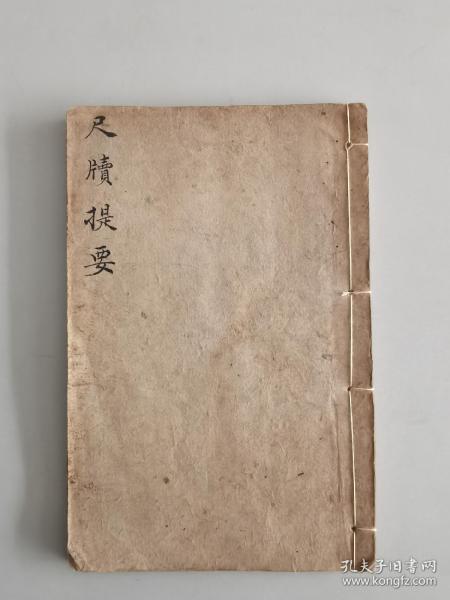 尺牘提要
孔夫子旧书网
www.kongfz.com